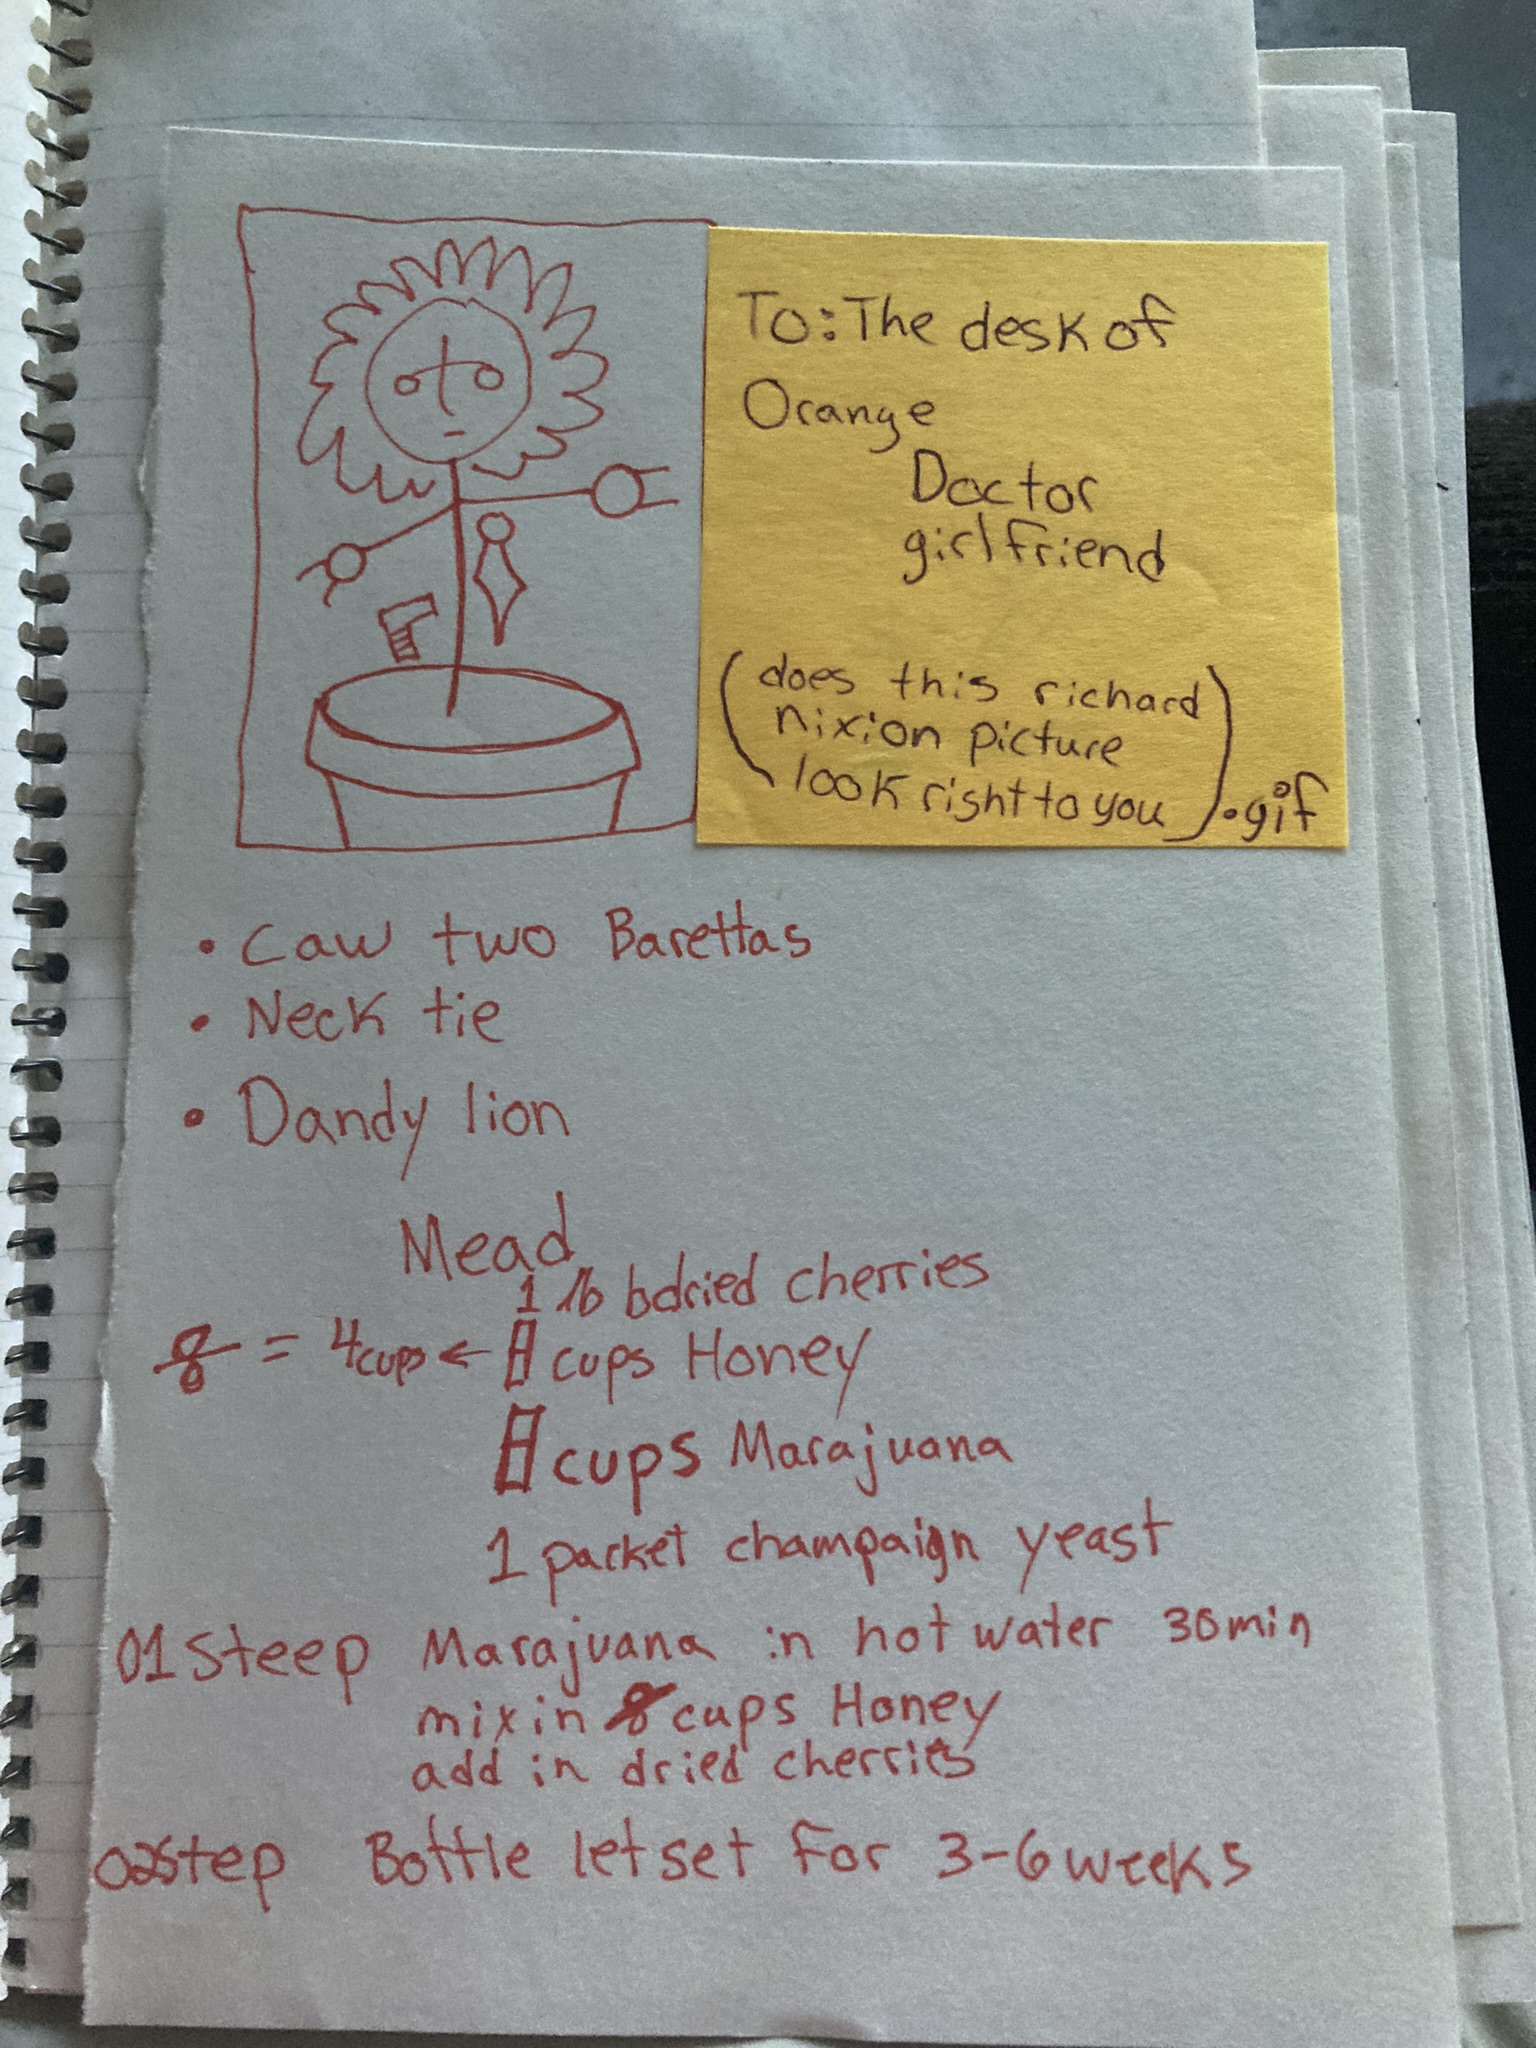 To: The desk of
Orange
Doctor
girlfriend
(does this richard
nixion picture
look right to you).gif
• Caw two Barettas
• Neck tie
• Dandy lion
Mead
1 lb bdried cherries
8 = 4cups ← 8 cups Honey
8 cups Marajuana
1 packet champaign yeast
01 Steep Marajuana in hot water 30min
mix in 8 cups Honey
add in dried cherries
02Step Bottle let set for 3-6 weeks